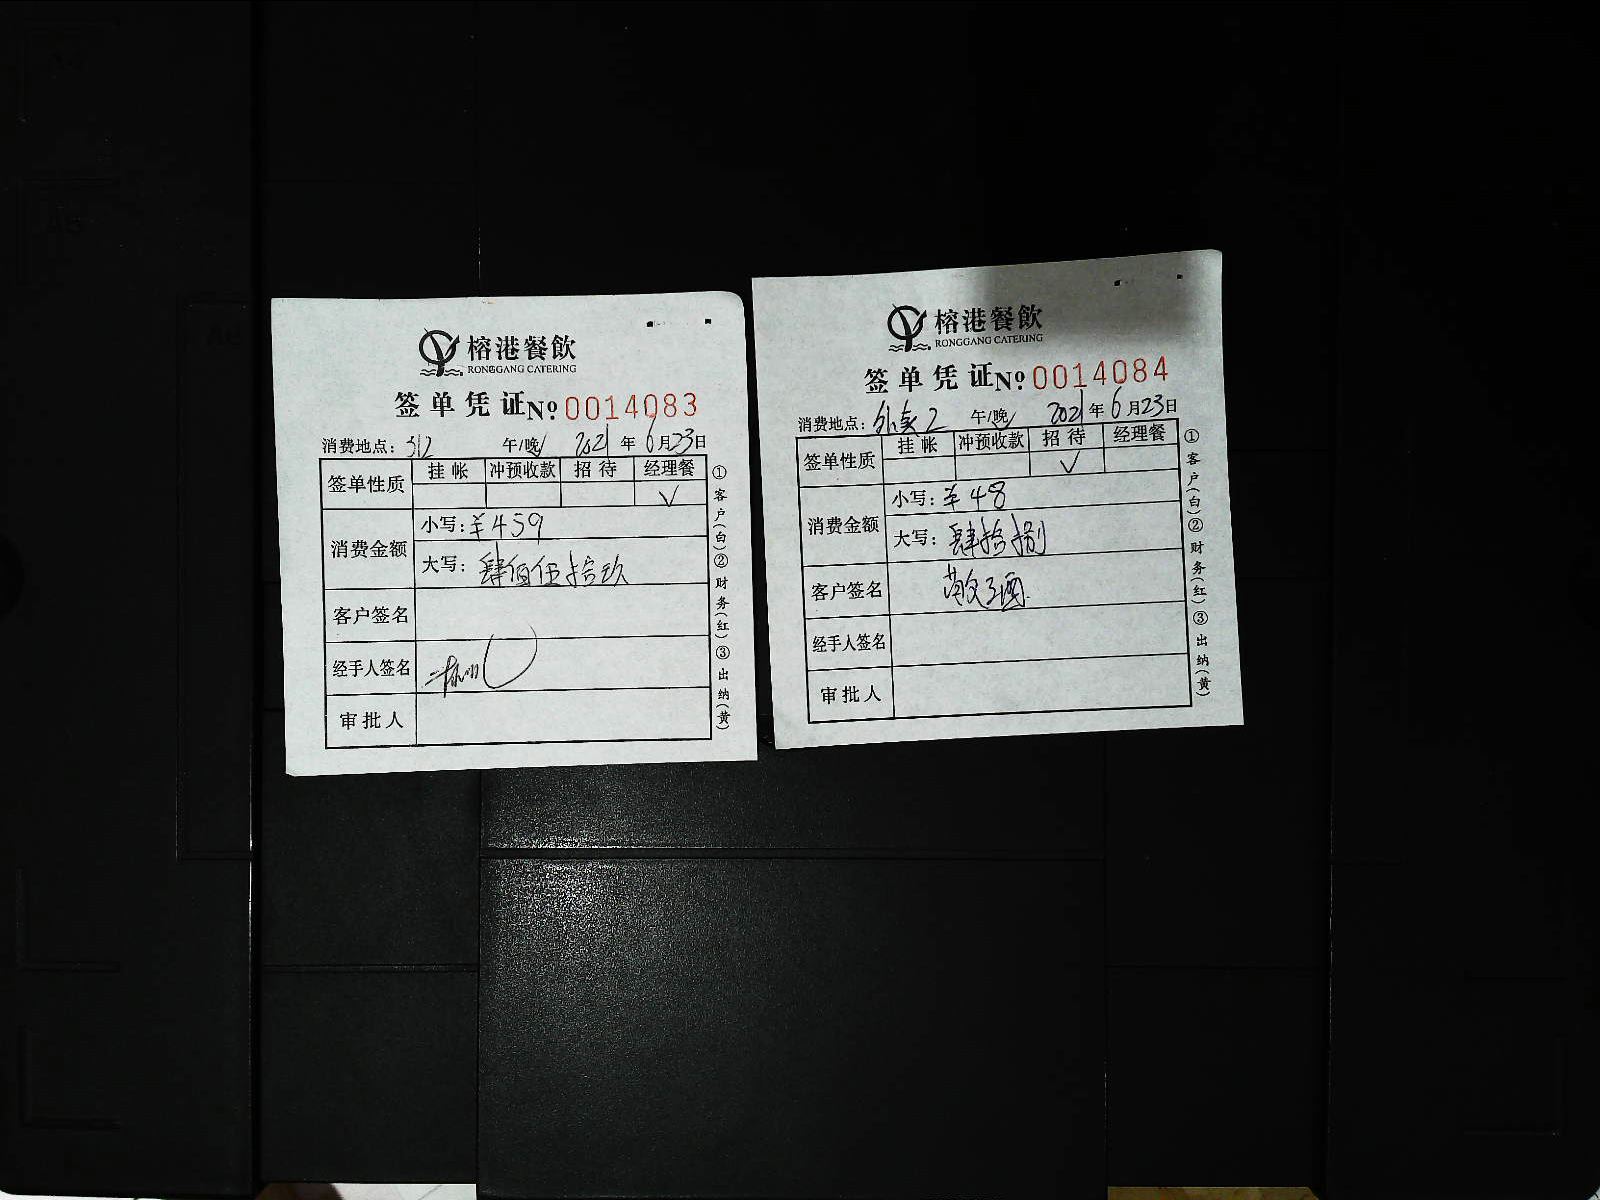 榕港餐飲
RONGGANG CATERING
签单凭证 No 0014083
消费地点: 312 午/晚 2021年6月23日
签单性质 挂帐 冲预收款 招待 经理餐
√
消费金额 小写: ¥459
大写: 肆佰伍拾玖
客户签名
经手人签名
审批人
①客户(白)②财务(红)③出纳(黄)
榕港餐飲
RONGGANG CATERING
签单凭证 No 0014084
消费地点: 外卖2 午/晚 2021年6月23日
签单性质 挂帐 冲预收款 招待 经理餐
√
消费金额 小写: ¥48
大写: 肆拾捌
客户签名
经手人签名
审批人
①客户(白)②财务(红)③出纳(黄)